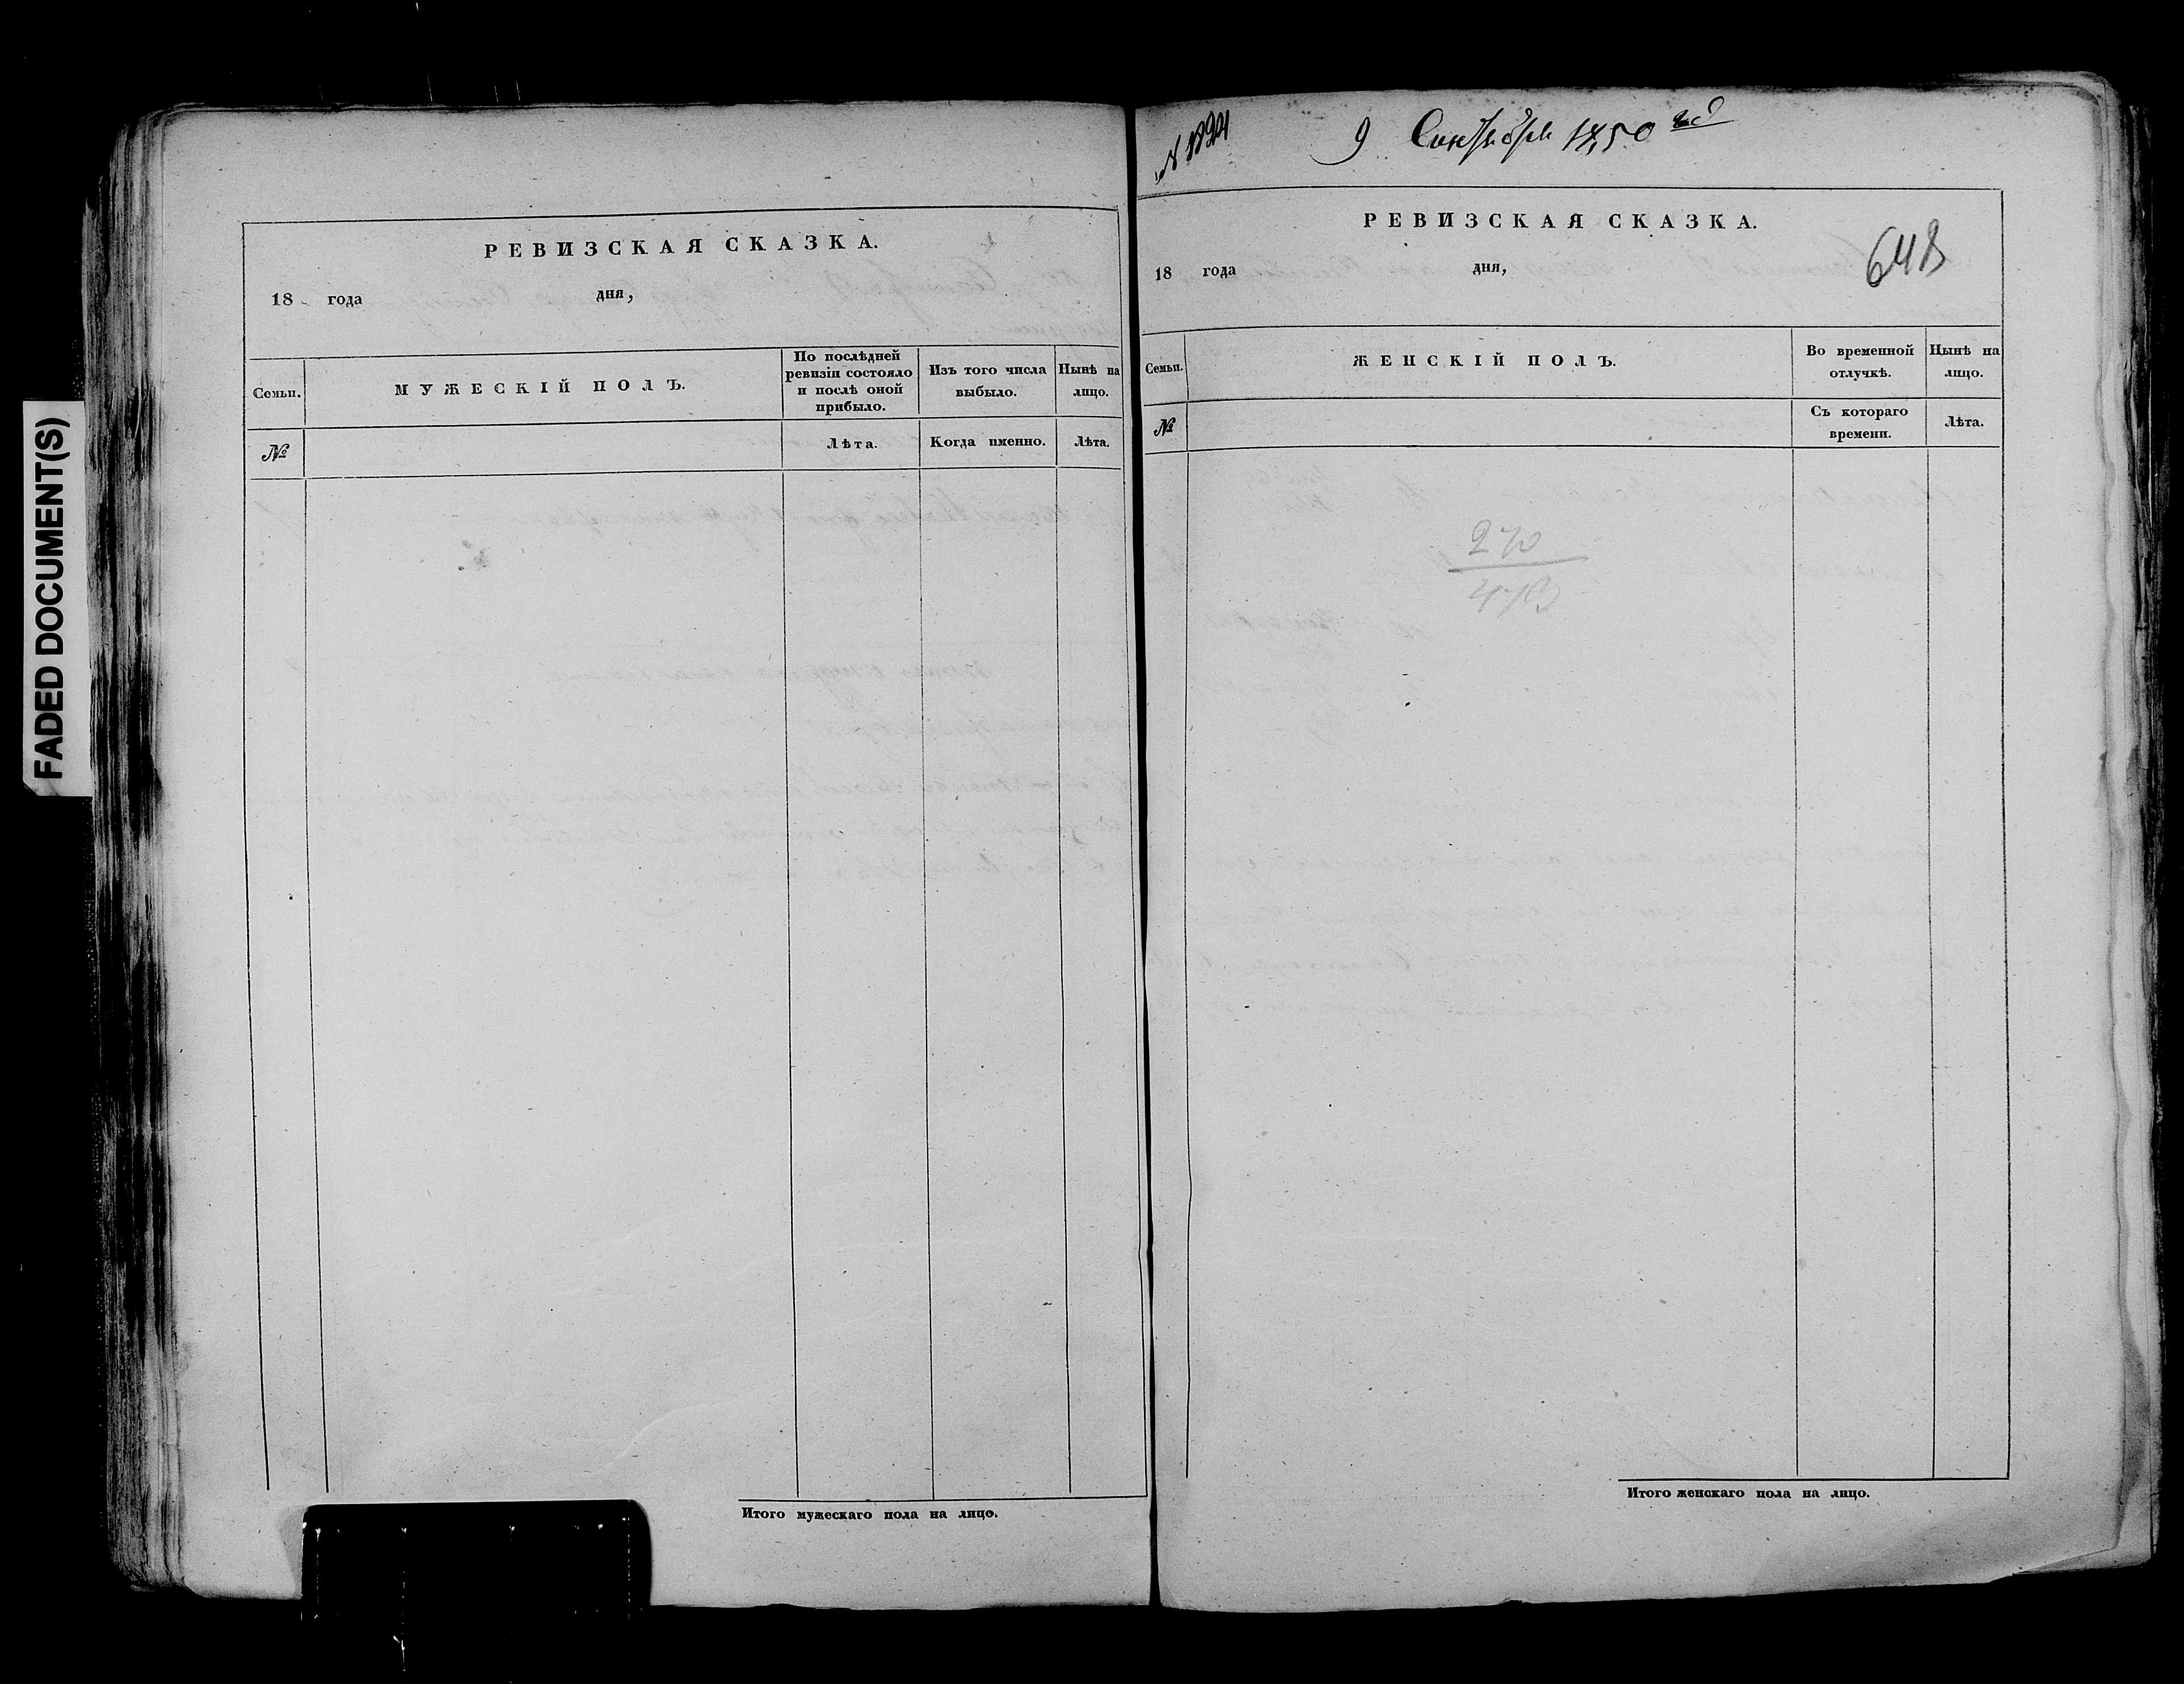 FADED DOCUMENT(S)
РЕВИЗСКАЯ СКАЗКА.
18 года дня,
Семьи.
МУЖЕСКІЙ ПОЛЪ.
По послѣдней
ревизіи состояло
и послѣ оной
прибыло.
Изъ того числа
выбыло.
Нынѣ на
лицо.
№
Лѣта.
Когда именно.
Лѣта.
Итого мужескаго пола на лицо.
9 Сентября 1850 год
РЕВИЗСКАЯ СКАЗКА.
18 года дня,
Семьи.
ЖЕНСКІЙ ПОЛЪ.
Во временной
отлучкѣ.
Нынѣ на
лицо.
№
Съ котораго
времени.
Лѣта.
270
Итого женскаго пола на лицо.